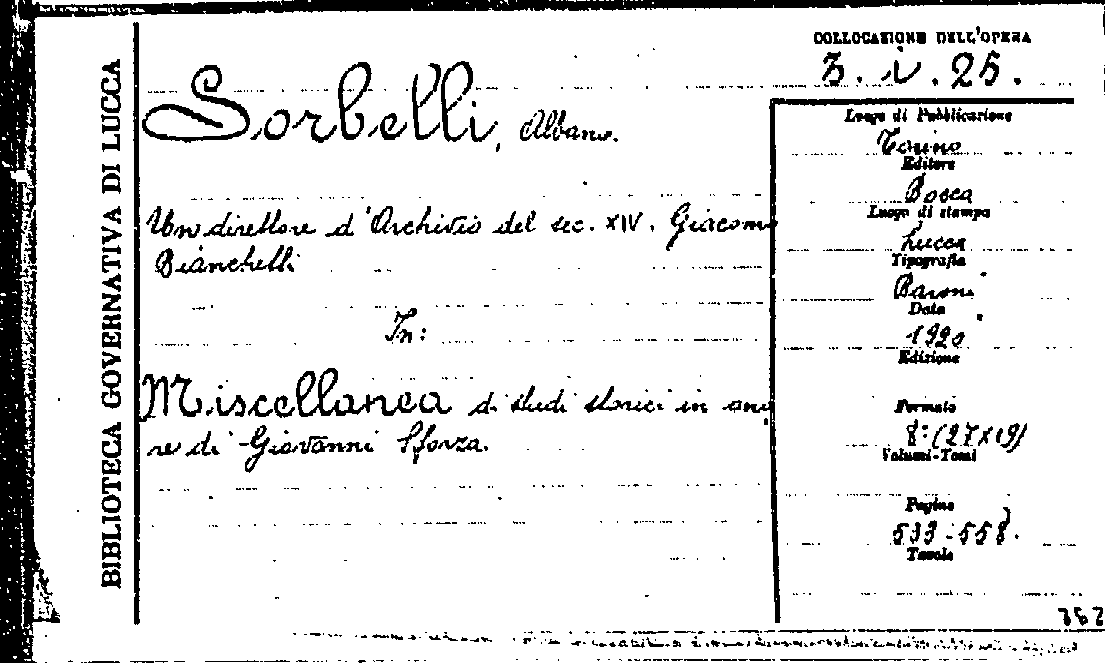 BIBLIOTECA GOVERNATIVA DI LUCCA
COLLOCAZIONE DELL'OPERA
3. V. 25.
Sorbelli, Albano.
Un direttore d'Archivio del sec. XIV. Giacomo
Bianchelli
In:
Miscellanea di studi storici in ono
re di Giovanni Sforza.
Luogo di Pubblicazione
Torino
Editore
Bocca
Luogo di stampa
Lucca
Tipografia
Baroni
Data
1920
Edizione
Formato
8º (27x19)
Volumi-Tomi
Pagine
533-558.
Tavole